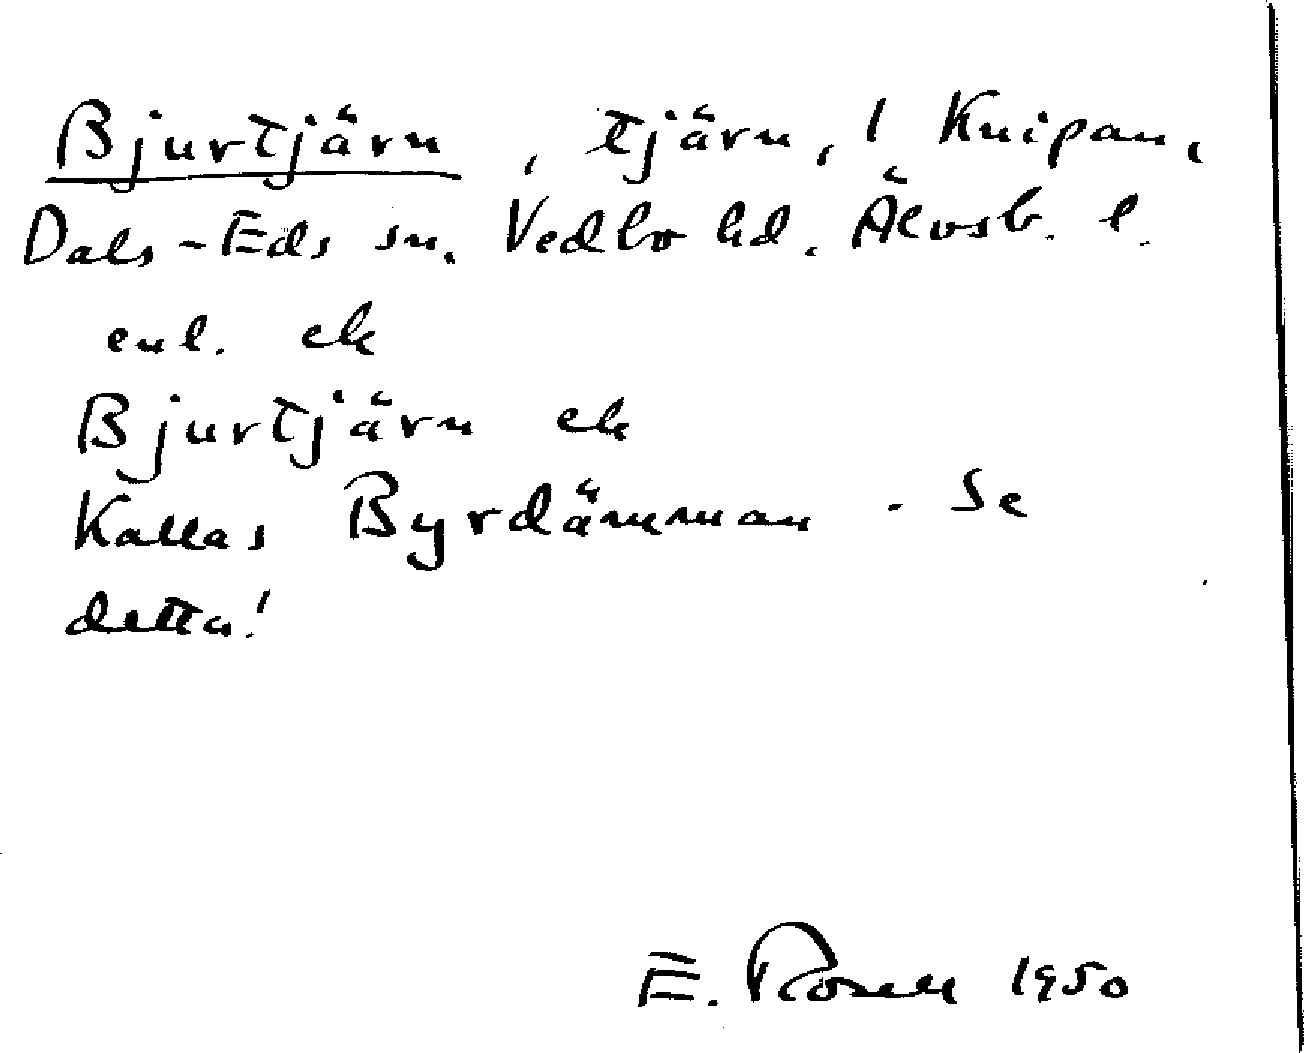 Bjurtjärn, tjärn, 1 Knipan,
Dals-Eds sn. Vedbo hd. Älvsb. l.
enl. ek
Bjurtjärn ek
Kallas Byrdämman. Se
detta!
E. Rosell 1950